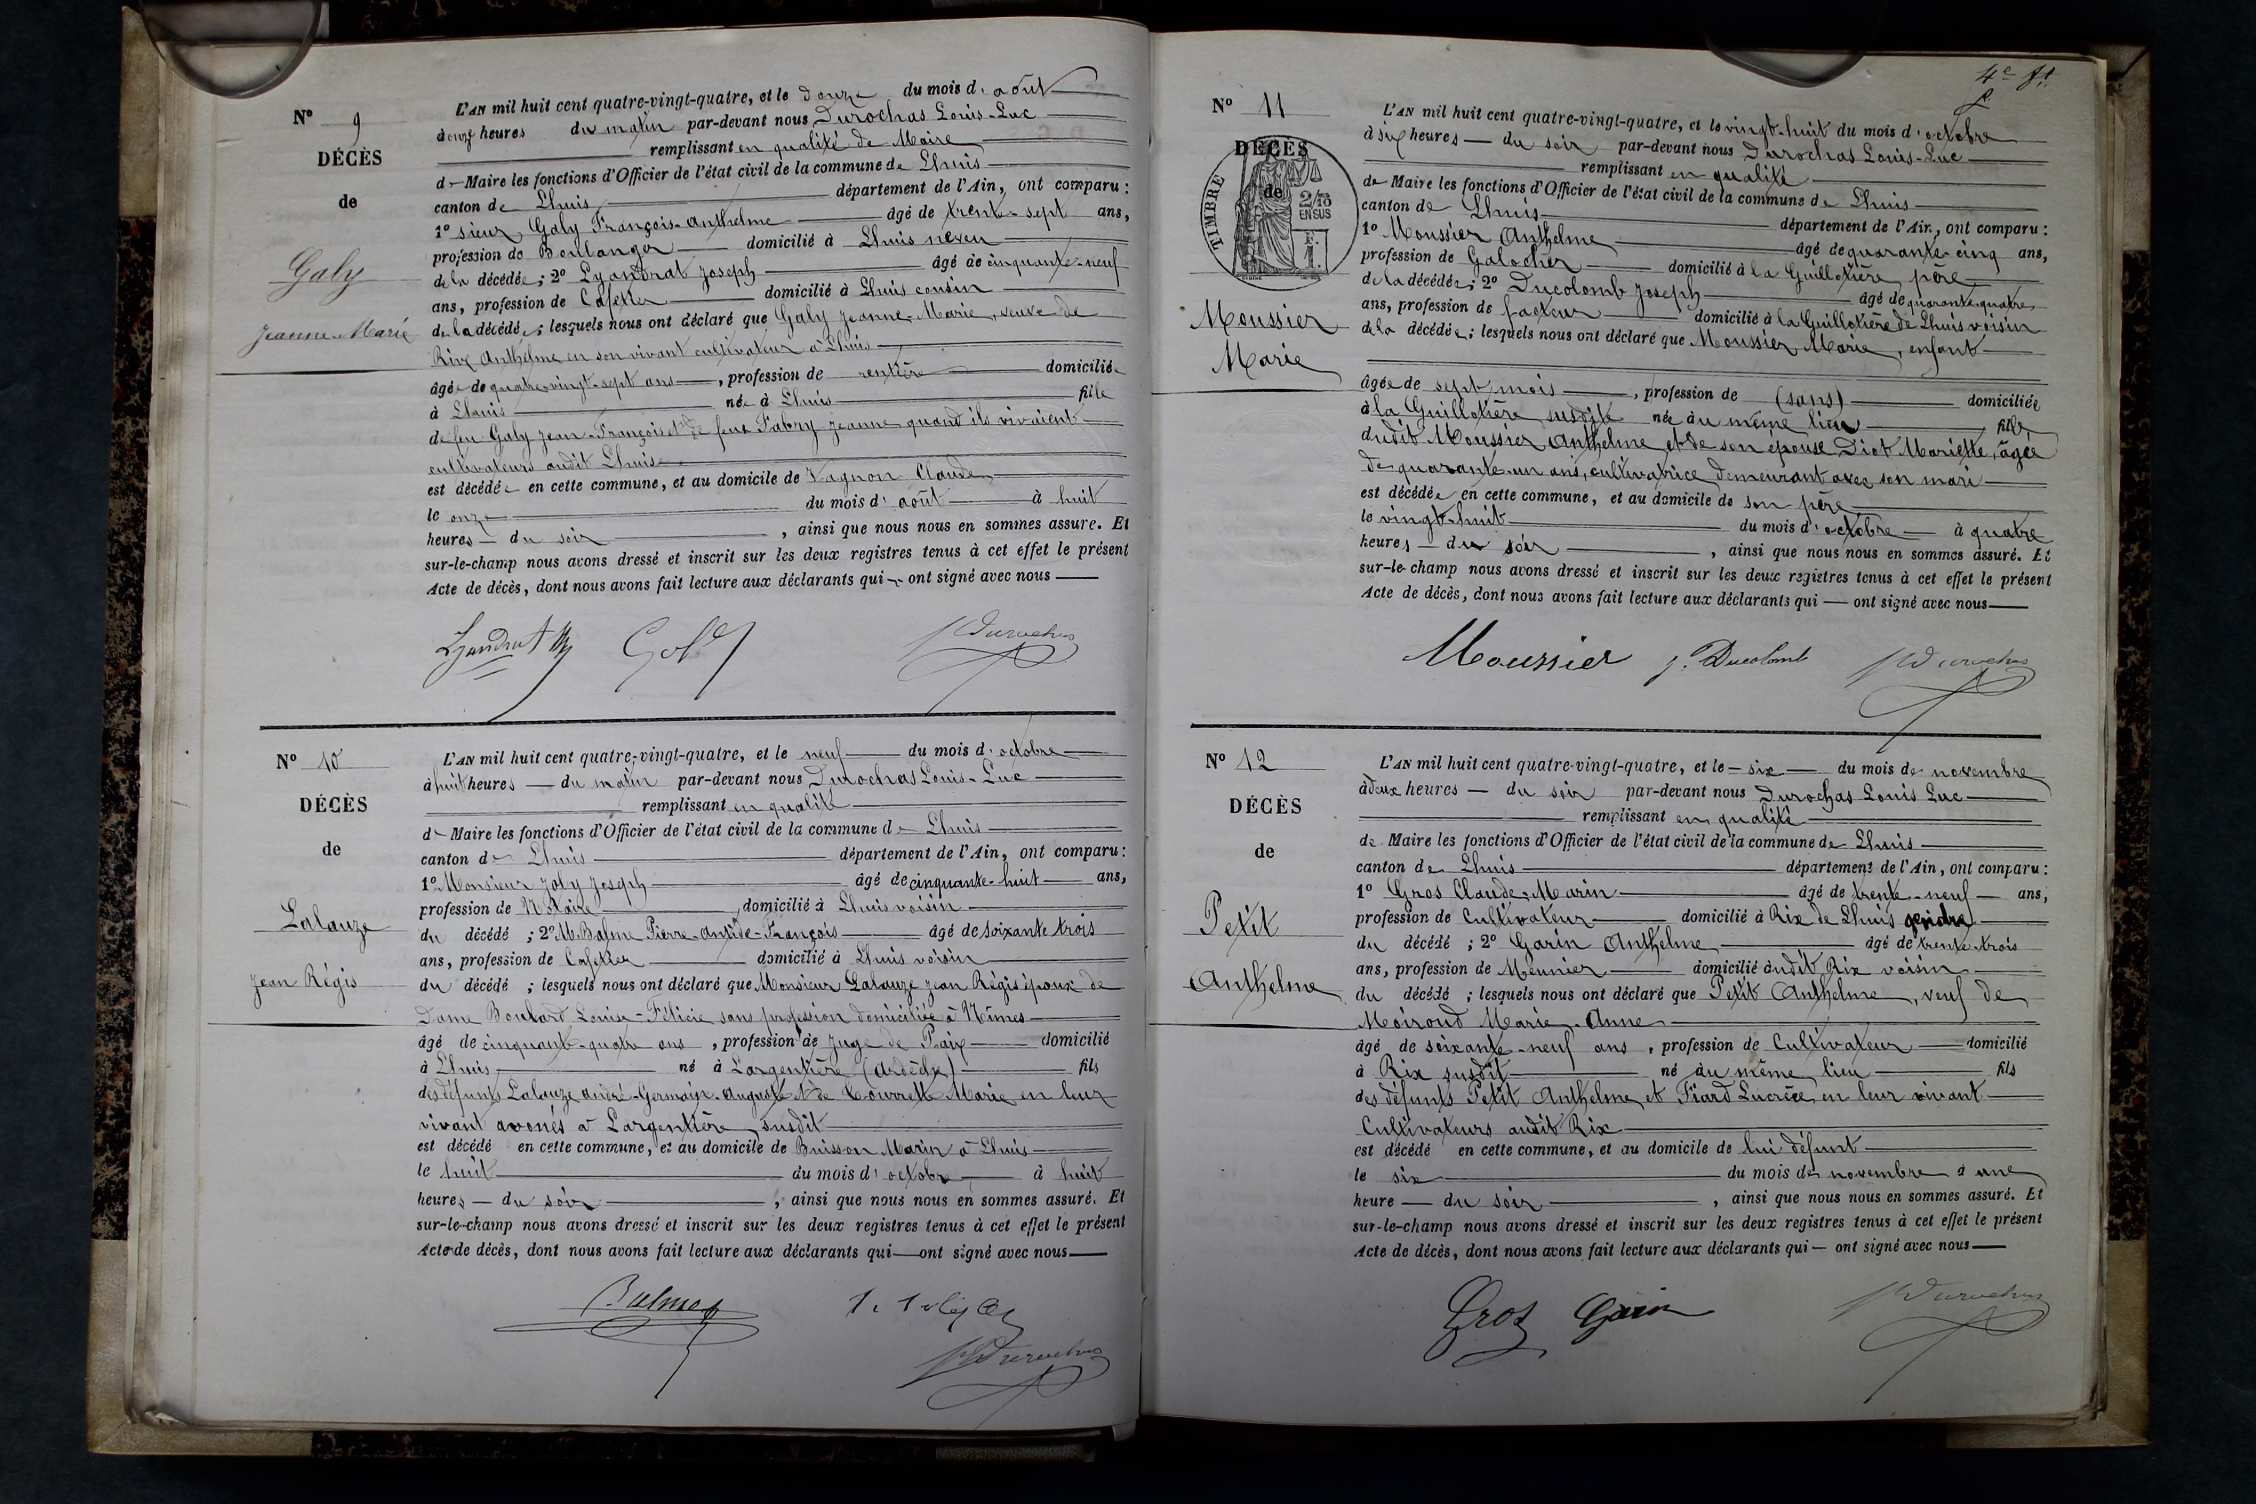 N° 9
DÉCÈS
de
Galy
Jeanne-Marie
L'AN mil huit cent quatre-vingt-quatre, et le douze du mois d'août
à onze heures du matin par-devant nous Durochas Louis-Luc
remplissant en qualité de Maire
de Maire les fonctions d'Officier de l'état civil de la commune de Lhuis
canton de Lhuis département de l'Ain, ont comparu :
1° sieur Galy François-Anthelme âgé de trente-sept ans,
profession de Boulanger domicilié à Lhuis neveu
de la décédée ; 2° Lyandrat Joseph âgé de cinquante-neuf
ans, profession de Cafetier domicilié à Lhuis cousin
de la décédée ; lesquels nous ont déclaré que Galy Jeanne-Marie, veuve de
Anthelme en son vivant cultivateur à Lhuis
âgée de quatre-vingt-sept ans, profession de rentière domiciliée
à Lhuis née à Lhuis fille
de feu Galy Jean-François et de feue Fabry Jeanne quand ils vivaient
cultivateurs audit Lhuis
est décédée en cette commune, et au domicile de Vagnon Claude
le onze du mois d'août à huit
heures du soir, ainsi que nous nous en sommes assuré. Et
sur-le-champ nous avons dressé et inscrit sur les deux registres tenus à cet effet le présent
Acte de décès, dont nous avons fait lecture aux déclarants qui ont signé avec nous
Lyandrat Galy Durochas
N° 10
DÉCÈS
de
Lalauze
Jean Régis
L'AN mil huit cent quatre-vingt-quatre, et le neuf du mois d'octobre
à huit heures du matin par-devant nous Durochas Louis-Luc
remplissant en qualité
de Maire les fonctions d'Officier de l'état civil de la commune de Lhuis
canton de Lhuis département de l'Ain, ont comparu :
1° Monsieur Joly Joseph âgé de cinquante-huit ans,
profession de Notaire domicilié à Lhuis voisin
du décédé ; 2° M. Balme Pierre-Antide-François âgé de soixante trois
ans, profession de Cafetier domicilié à Lhuis voisin
du décédé ; lesquels nous ont déclaré que Monsieur Lalauze Jean Régis époux de
Dame Boulard Louise-Félicie sans profession domiciliée à Nîmes
âgé de cinquante-quatre ans, profession de Juge de Paix domicilié
à Lhuis né à Largentière (Ardèche) fils
des défunts Lalauze André-Germain-Auguste et de Tourrette Marie en leur
vivant avoués à Largentière susdit
est décédé en cette commune, et au domicile de Buisson Marin à Lhuis
le huit du mois d'octobre à huit
heures du soir, ainsi que nous nous en sommes assuré. Et
sur-le-champ nous avons dressé et inscrit sur les deux registres tenus à cet effet le présent
Acte de décès, dont nous avons fait lecture aux déclarants qui ont signé avec nous
Balme
Durochas
4e ft
N° 11
DÉCÈS
de
TIMBRE
2/10
EN SUS
Moussier
Marie
L'AN mil huit cent quatre-vingt-quatre, et le vingt-huit du mois d'octobre
à six heures du soir par-devant nous Durochas Louis-Luc
remplissant en qualité
de Maire les fonctions d'Officier de l'état civil de la commune de Lhuis
canton de Lhuis département de l'Ain, ont comparu :
1° Moussier Anthelme âgé de quarante-cinq ans,
profession de Galocher domicilié à la Guillotière père
de la décédée ; 2° Ducolomb Joseph âgé de quarante-quatre
ans, profession de facteur domicilié à la Guillotière de Lhuis voisin
de la décédée ; lesquels nous ont déclaré que Moussier Marie, enfant
âgée de sept mois, profession de (sans) domiciliée
à la Guillotière susdite née au même lieu fille
dudit Moussier Anthelme et de son épouse Diot Mariette, âgée
de quarante-un ans, cultivatrice demeurant avec son mari
est décédée en cette commune, et au domicile de son père
le vingt-huit du mois d'octobre à quatre
heures du soir, ainsi que nous nous en sommes assuré. Et
sur-le-champ nous avons dressé et inscrit sur les deux registres tenus à cet effet le présent
Acte de décès, dont nous avons fait lecture aux déclarants qui ont signé avec nous
Moussier J. Ducolomb Durochas
N° 12
DÉCÈS
de
Petit
Anthelme
L'AN mil huit cent quatre-vingt-quatre, et le six du mois de novembre
à deux heures du soir par-devant nous Durochas Louis Luc
remplissant en qualité
de Maire les fonctions d'Officier de l'état civil de la commune de Lhuis
canton de Lhuis département de l'Ain, ont comparu :
1° Gros Claude-Marin âgé de trente-neuf ans,
profession de Cultivateur domicilié à Rix de Lhuis gendre
du décédé ; 2° Garin Anthelme âgé de trente-trois
ans, profession de Meunier domicilié audit Rix voisin
du décédé ; lesquels nous ont déclaré que Petit Anthelme, veuf de
Moiroud Marie-Anne
âgé de soixante-neuf ans, profession de Cultivateur domicilié
à Rix susdit né au même lieu fils
des défunts Petit Anthelme et Fiard Lucrèce en leur vivant
Cultivateurs audit Rix
est décédé en cette commune, et au domicile de lui défunt
le six du mois de novembre à une
heure du soir, ainsi que nous nous en sommes assuré. Et
sur-le-champ nous avons dressé et inscrit sur les deux registres tenus à cet effet le présent
Acte de décès, dont nous avons fait lecture aux déclarants qui ont signé avec nous
Gros Garin Durochas